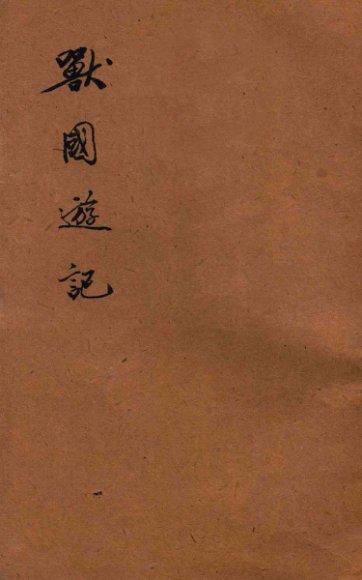 獸國遊記